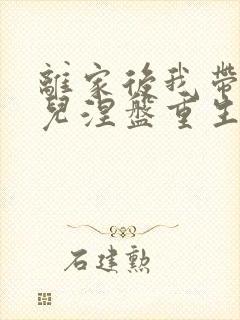 離家後我帶
兒涅盤重生
石建勲